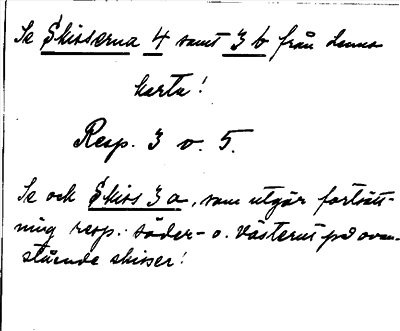 Se Skisserna 4 samt 3 b från denna
karta!
Resp. 3 o. 5.
Se och Skiss 3 a, som utgör fortsätt-
ning resp. söder- o. västerut på ovan-
stående skisser!